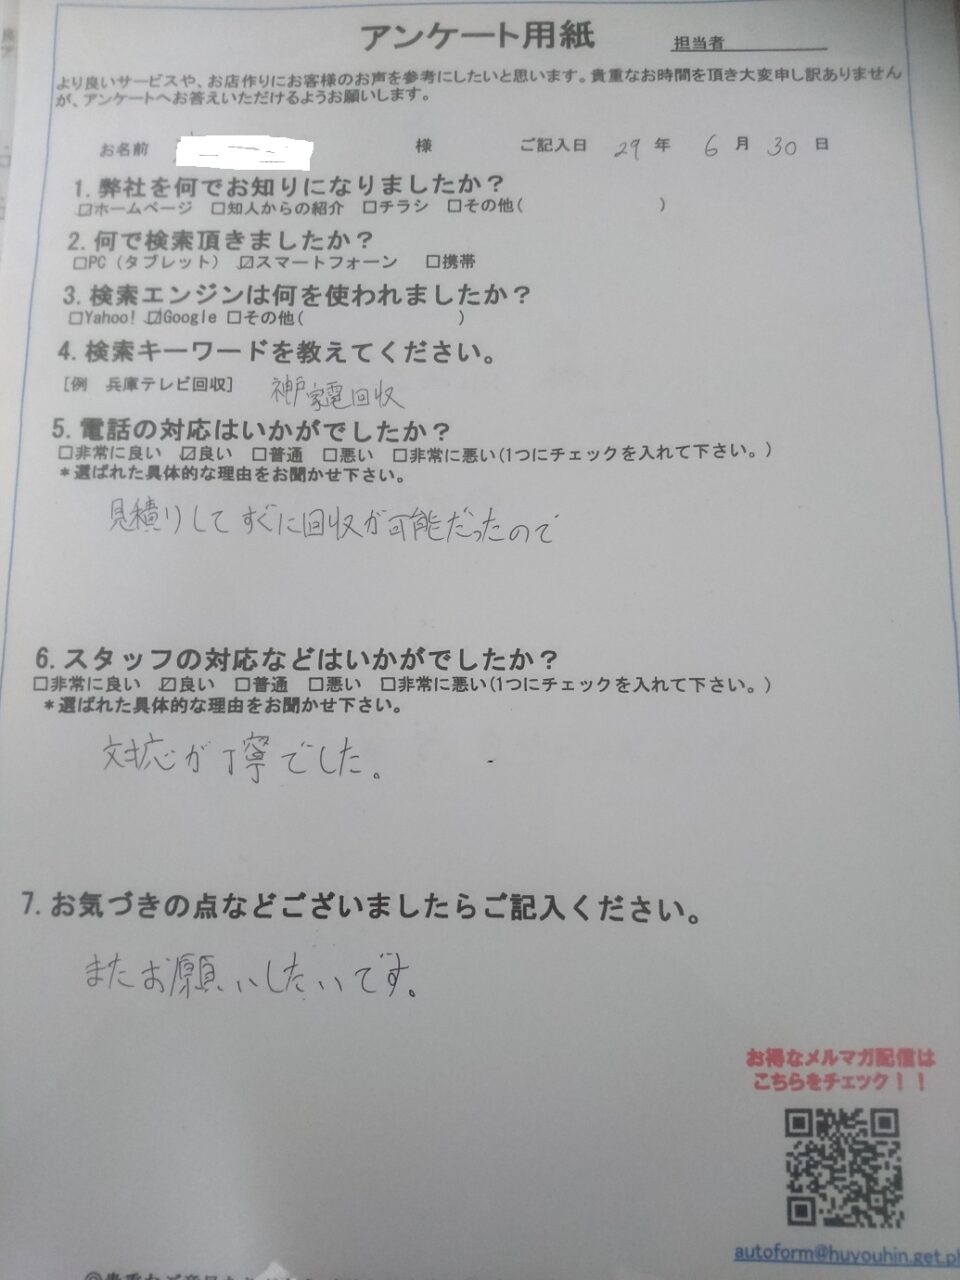 アンケート用紙 担当者
より良いサービスや、お店作りにお客様のお声を参考にしたいと思います。貴重なお時間を頂き大変申し訳ありません
が、アンケートへお答えいただけるようお願いします。
お名前 様 ご記入日 29 年 6 月 30 日
1. 弊社を何でお知りになりましたか？
☑ホームページ □知人からの紹介 □チラシ □その他( )
2. 何で検索頂きましたか？
□PC（タブレット） ☑スマートフォーン □携帯
3. 検索エンジンは何を使われましたか？
□Yahoo! ☑Google □その他( )
4. 検索キーワードを教えてください。
[例 兵庫テレビ回収] 神戸家電回収
5. 電話の対応はいかがでしたか？
□非常に良い ☑良い □普通 □悪い □非常に悪い(1つにチェックを入れて下さい。)
＊選ばれた具体的な理由をお聞かせ下さい。
見積りしてすぐに回収が可能だったので
6. スタッフの対応などはいかがでしたか？
□非常に良い ☑良い □普通 □悪い □非常に悪い(1つにチェックを入れて下さい。)
＊選ばれた具体的な理由をお聞かせ下さい。
対応が丁寧でした。
7. お気づきの点などございましたらご記入ください。
またお願いしたいです。
お得なメルマガ配信は
こちらをチェック！！
autoform@huyouhin.get.p